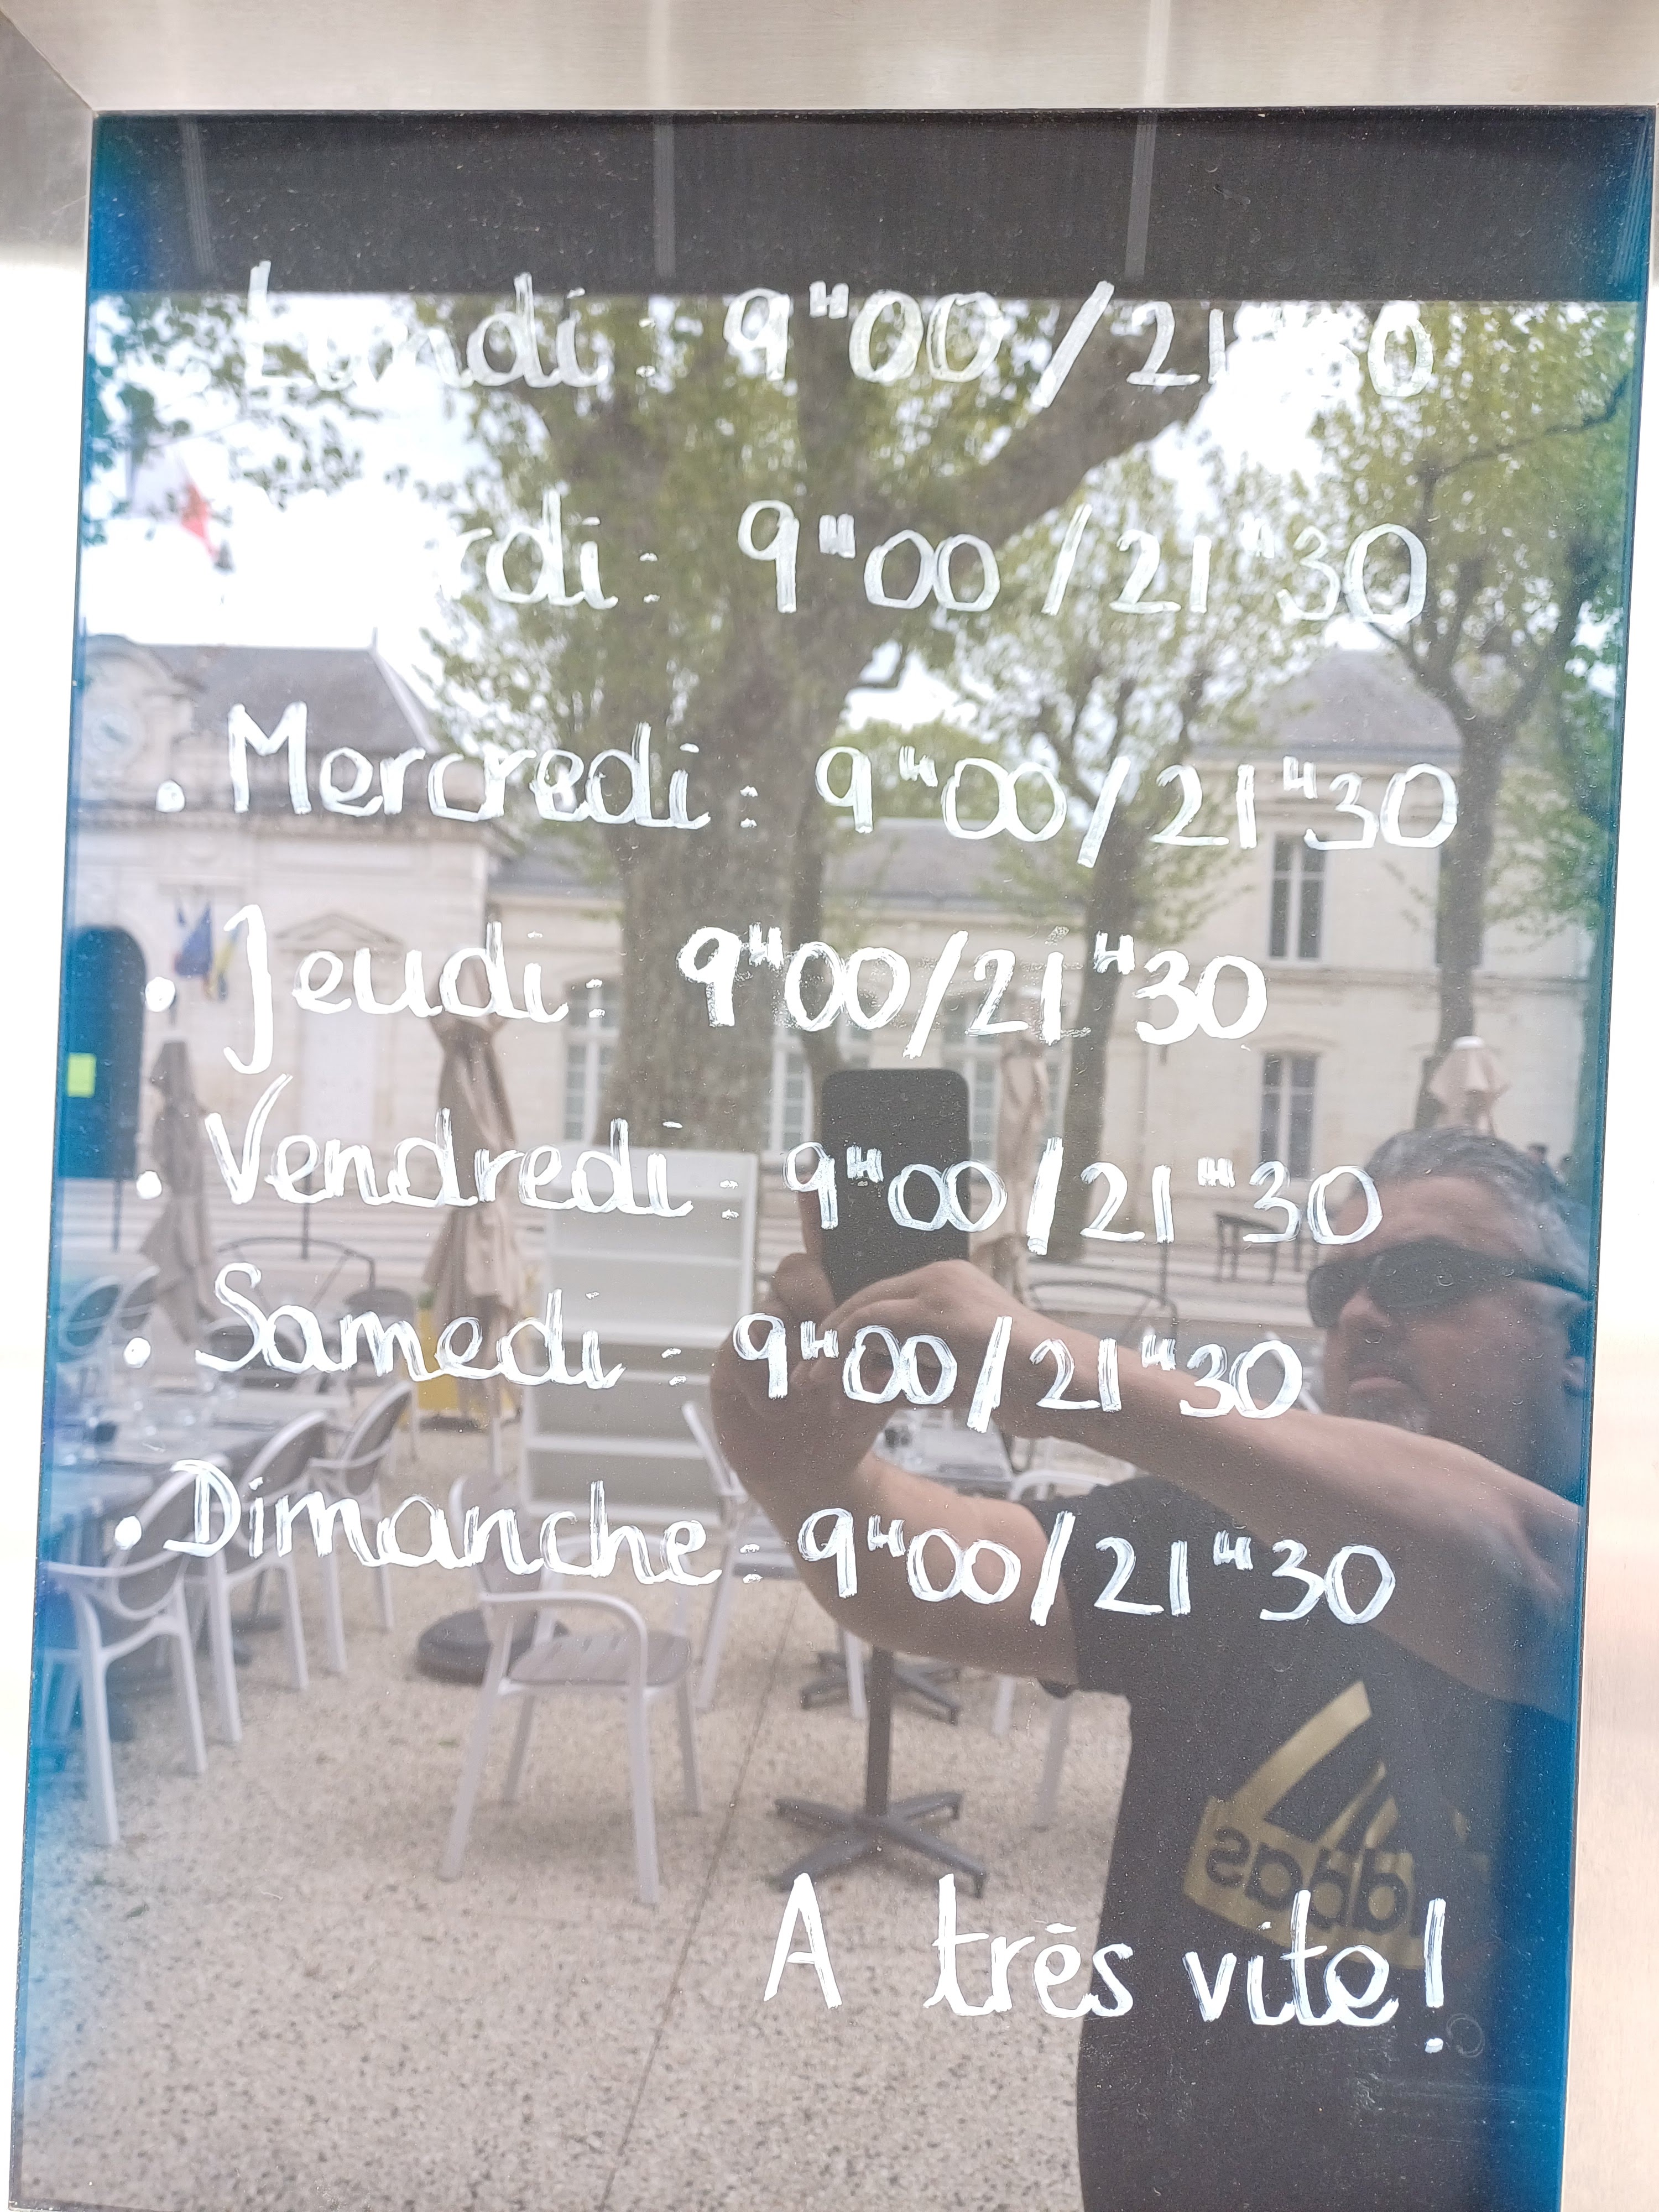 Lundi : 9H00 / 21H30
rdi : 9H00 / 21H30
• Mercredi : 9H00 / 21H30
• Jeudi : 9H00 / 21H30
• Vendredi : 9H00 / 21H30
• Samedi : 9H00 / 21H30
• Dimanche : 9H00 / 21H30
adidas
A très vite !